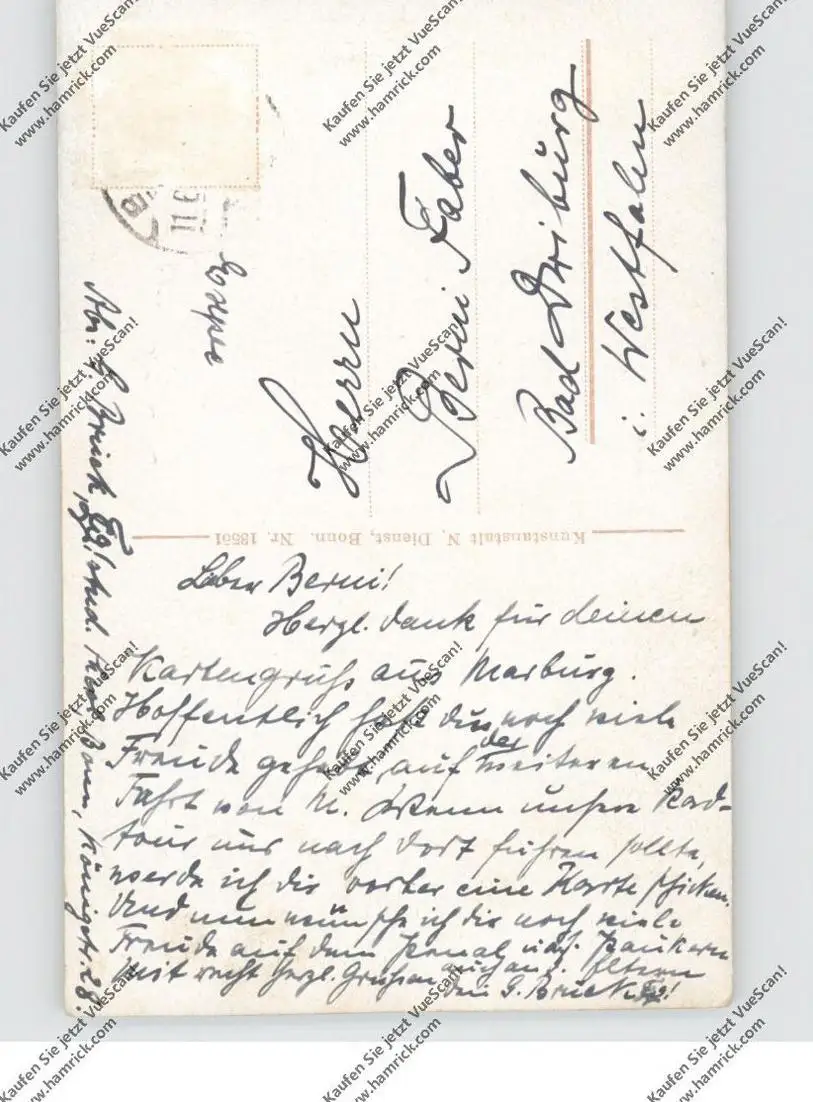 Herrn
Berni Faber
Bad Driburg
i. Westfalen
Abs: G. Brück, stud. Bonn, Königstr. 28.
Kunstanstalt N. Dienst, Bonn. Nr. 18551
Lieber Berni!
Herzl. Dank für deinen
Kartengruß aus Marburg.
Hoffentlich hast du noch viele
Freude gehabt auf der weiteren
Fahrt von M. Wenn unsere Rad-
tour uns nach dort führen sollte,
werde ich dir vorher eine Karte schicken.
Und nun wünsche ich dir noch viele
Freude auf dem Penal u. d. Paukern
Mit recht herzl. Grüßen auch an d. Eltern
dein G. Brück
Kaufen Sie jetzt VueScan!
www.hamrick.com